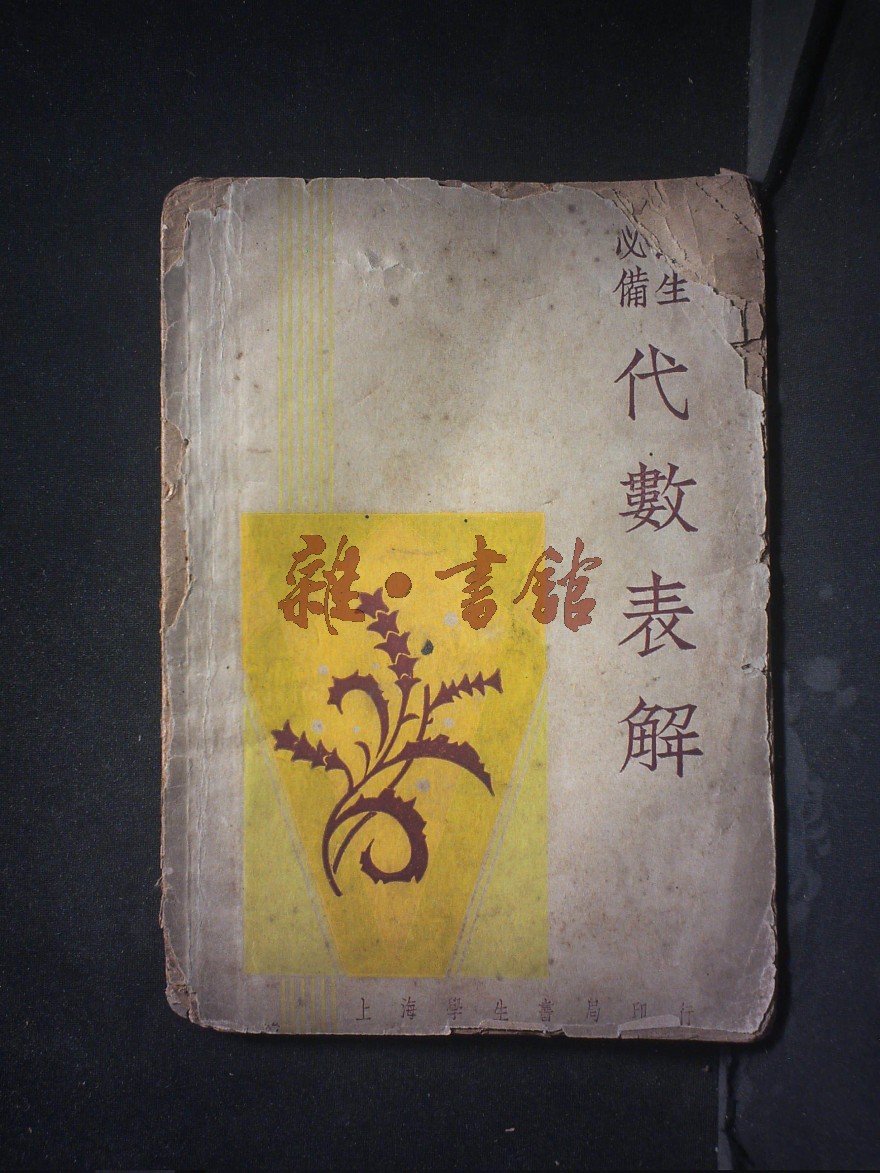 生
必備
代數表解
雜·書館
上海學生書局印行